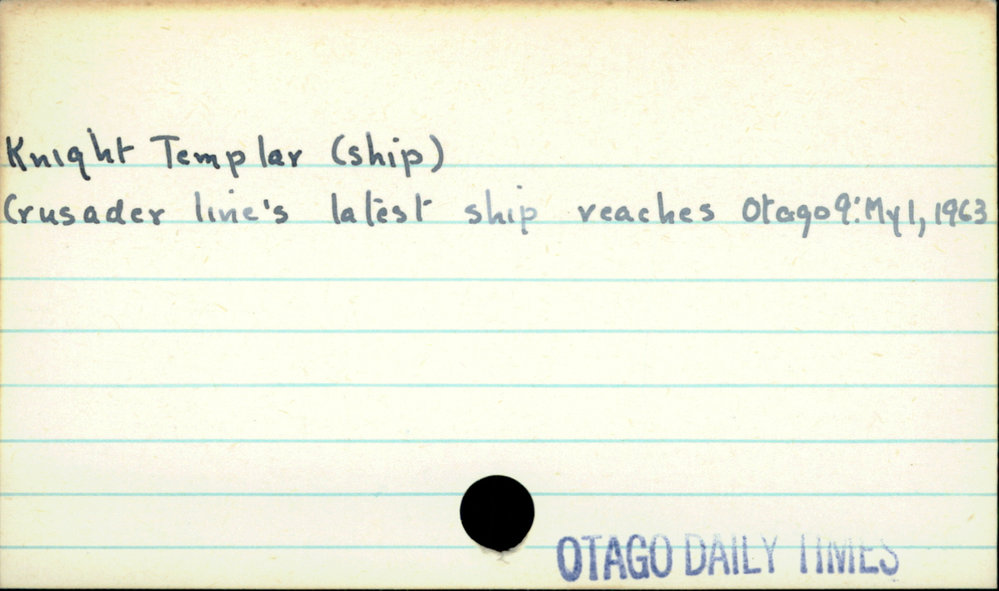 Knight Templar (ship)
Crusader line's latest ship reaches Otago 9:My 1, 1963
OTAGO DAILY TIMES